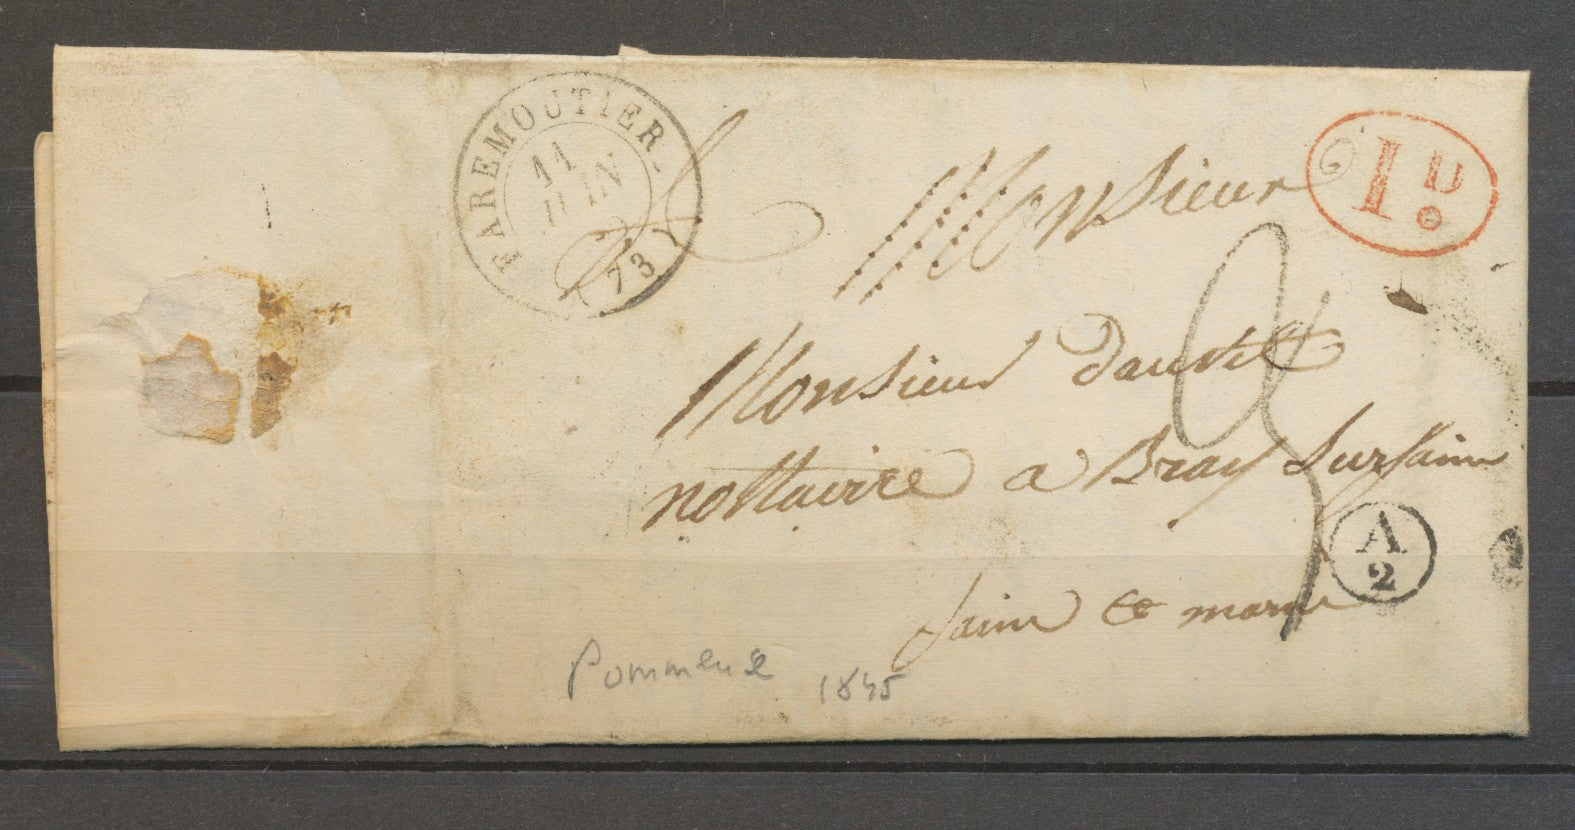 FAREMOUTIER.
11
JUIN
(73)
1 D
Monsieur
Monsieur
nottaire a Bray Sur Saine
A
2
Saine Et marne
Pommeuse 1845